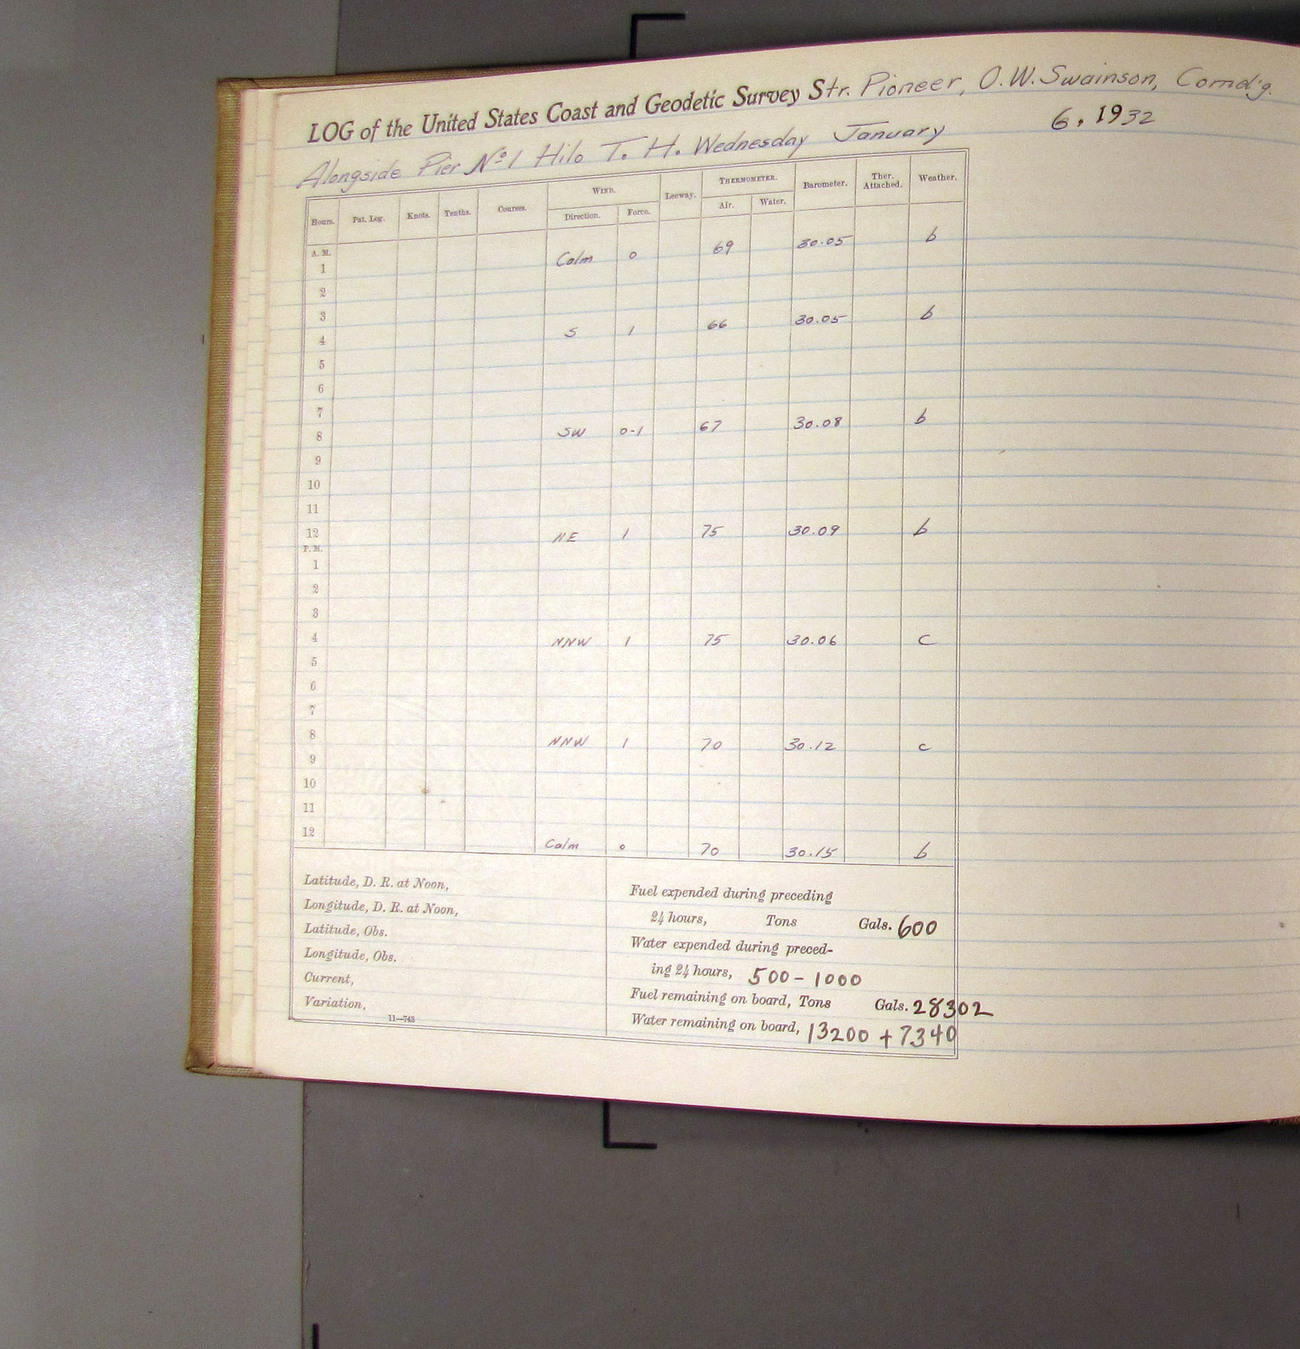 LOG of the United States Coast and Geodetic Survey Str. Pioneer, O.W. Swainson, Comd'g.
Alongside Pier No 1 Hilo T. H. Wednesday January 6, 1932
Hours. Pat. Log. Knots. Tenths. Courses. WIND. Leeway. THERMOMETER. Barometer. Ther. Attached. Weather.
Direction. Force. Air. Water.
A. M. Calm 0 69 30.05 b
1
2
3
4 S 1 66 30.05 b
5
6
7
8 SW 0-1 67 30.08 b
9
10
11
12 NE 1 75 30.09 b
P. M.
1
2
3
4 NNW 1 75 30.06 c
5
6
7
8 NNW 1 70 30.12 c
9
10
11
12 Calm 0 70 30.15 b
Latitude, D. R. at Noon,
Longitude, D. R. at Noon,
Latitude, Obs.
Longitude, Obs.
Current,
Variation,
11—743
Fuel expended during preceding
24 hours, Tons Gals. 600
Water expended during preced-
ing 24 hours, 500 - 1000
Fuel remaining on board, Tons Gals. 28302
Water remaining on board, 13200 + 7340